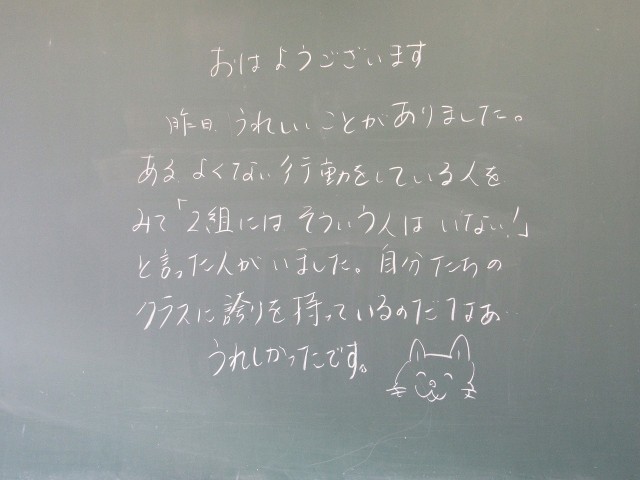 おはようございます
昨日 うれしいことがありました。
ある よくない行動をしている人を
みて「2組には そういう人は いない!」
と言った人がいました。自分たちの
クラスに誇りを持っているのだなぁ
うれしかったです。